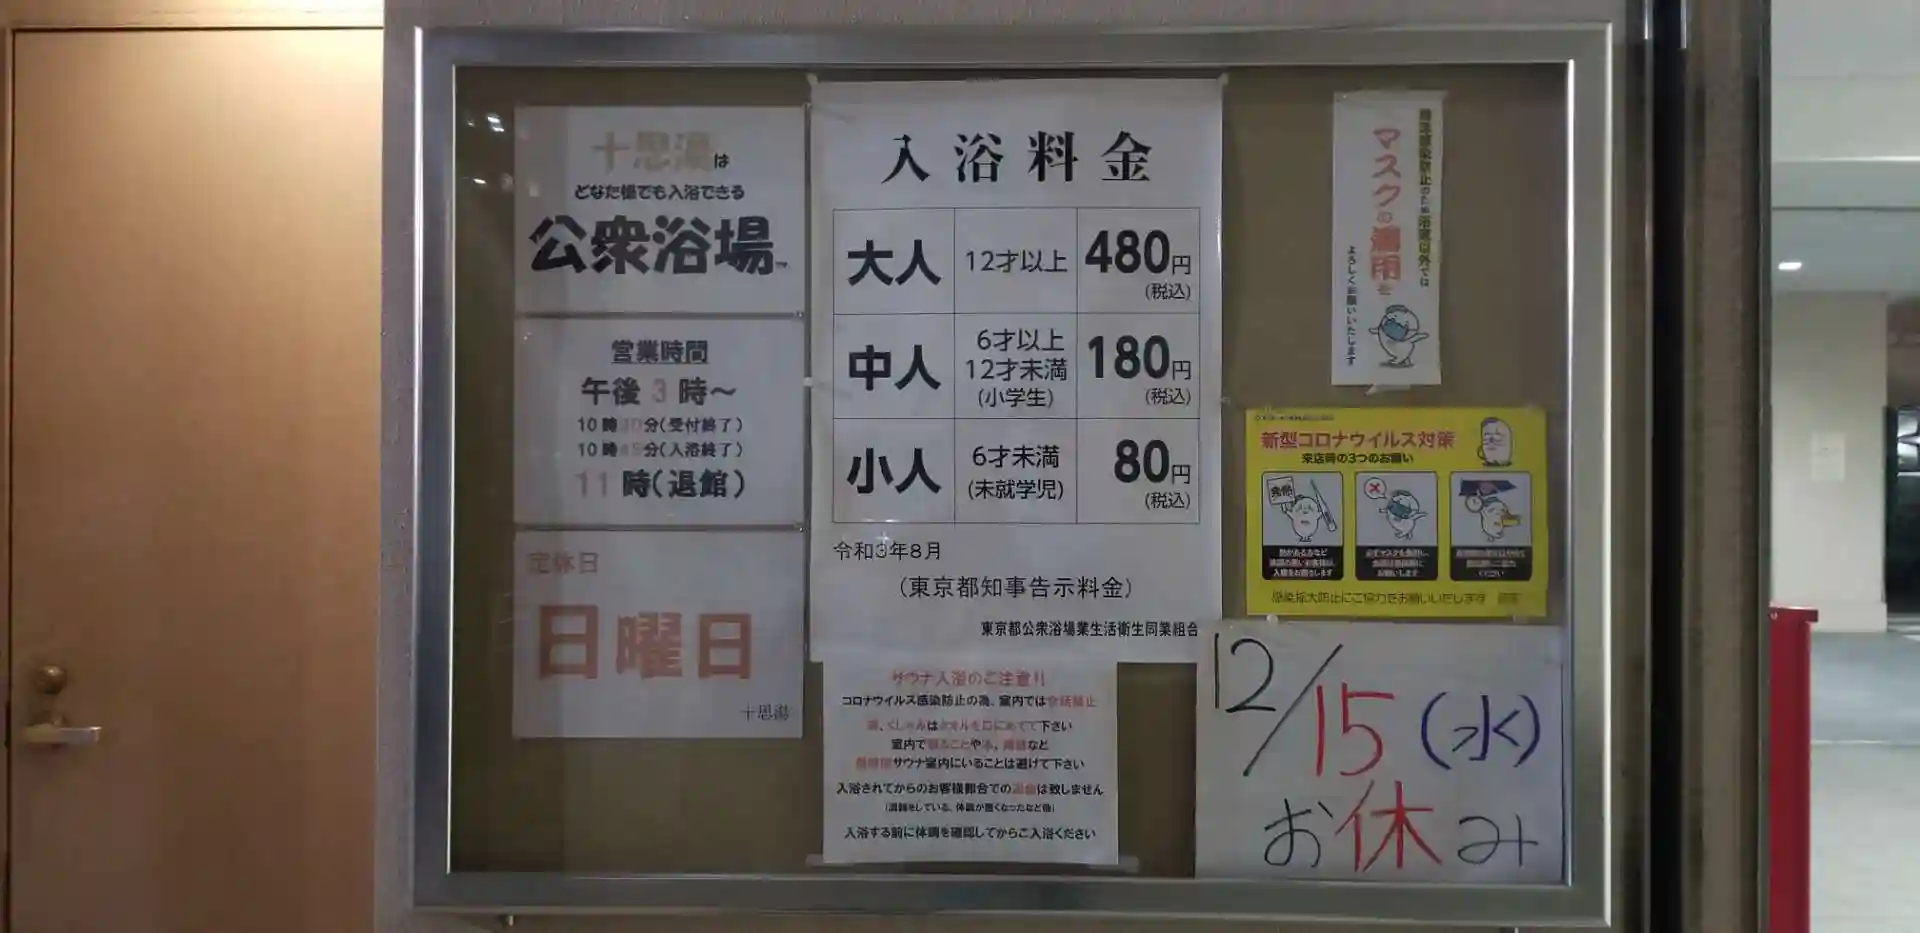 十思湯は
どなた様でも入浴できる
公衆浴場
営業時間
午後3時～
10時30分(受付終了)
10時45分(入浴終了)
11時(退館)
定休日
日曜日
十思湯
入浴料金
大人 12才以上 480円
(税込)
中人 6才以上 12才未満 (小学生) 180円
(税込)
小人 6才未満 (未就学児) 80円
(税込)
令和3年8月
(東京都知事告示料金)
東京都公衆浴場業生活衛生同業組合
サウナ入浴のご注意!!
コロナウイルス感染防止の為、室内では会話禁止
咳、くしゃみはタオルを口にあてて下さい
室内で寝ることや本、雑誌など
長時間サウナ室内にいることは避けて下さい
入浴されてからのお客様都合での返金は致しません
入浴する前に体調を確認してからご入浴ください
マスクの着用を
よろしくお願いいたします
新型コロナウイルス対策
来店時の3つのお願い
感染拡大防止にご協力をお願いいたします
12/15(水)
お休み